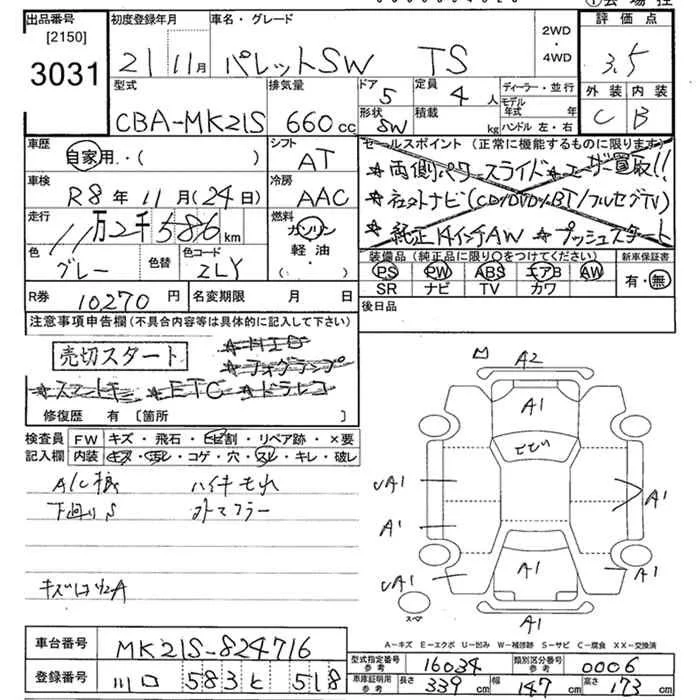 出品番号 初度登録年月 車名・グレード 2WD・4WD 評価点
[2150]
3031 21 11月 パレットSW TS 3.5
型式 排気量 ドア 5 定員 4人 ディーラー・並行 外装 内装
CBA-MK21S 660cc 形状 SW 積載 kg モデル年式 年 ハンドル 左・右 C B
車歴 自家用・( ) シフト AT セールスポイント (正常に機能するものに限ります)
★両側パワースライド ★ユーザー買取!!
車検 R8年11月(24日) 冷房 AAC ★社外ナビ(CD/DVD/BT/フルセグTV)
走行 11万2千586km 燃料 ガソリン・軽油・( ) ★純正14インチAW ★プッシュスタート
色 グレー 色替 色コード ZLY 装備品 (純正品に限り○をつけてください) 新車保証書
PS PW ABS エアB AW 有・無
SR ナビ TV カワ
R券 10,270円 名変期限 月 日 後日品
注意事項申告欄 (不具合内容等は具体的に記入して下さい)
売切スタート ★HID
★フォグランプ
★スマートキー ★ETC ★ドラレコ
修復歴 有 〔箇所 〕
検査員記入欄 FW キズ・飛石・ヒビ割・リペア跡・×要
内装 キズ・汚レ・コゲ・穴・スレ・キレ・破レ
A/C ハイキもれ
下廻りS マフラー
A2
A1
ヒビ
UA1 A1
A1
UA1 A1 A1
スペア
A1
A-キズ E-エクボ U-凹み W-補修跡 S-サビ C-腐食 XX-交換済
車台番号 MK21S-824716
型式指定番号 参考 16034 類別区分番号 参考 0006
登録番号 川口 583 と 518
車庫証明用 参考 長さ 339cm 幅 147cm 高さ 173cm